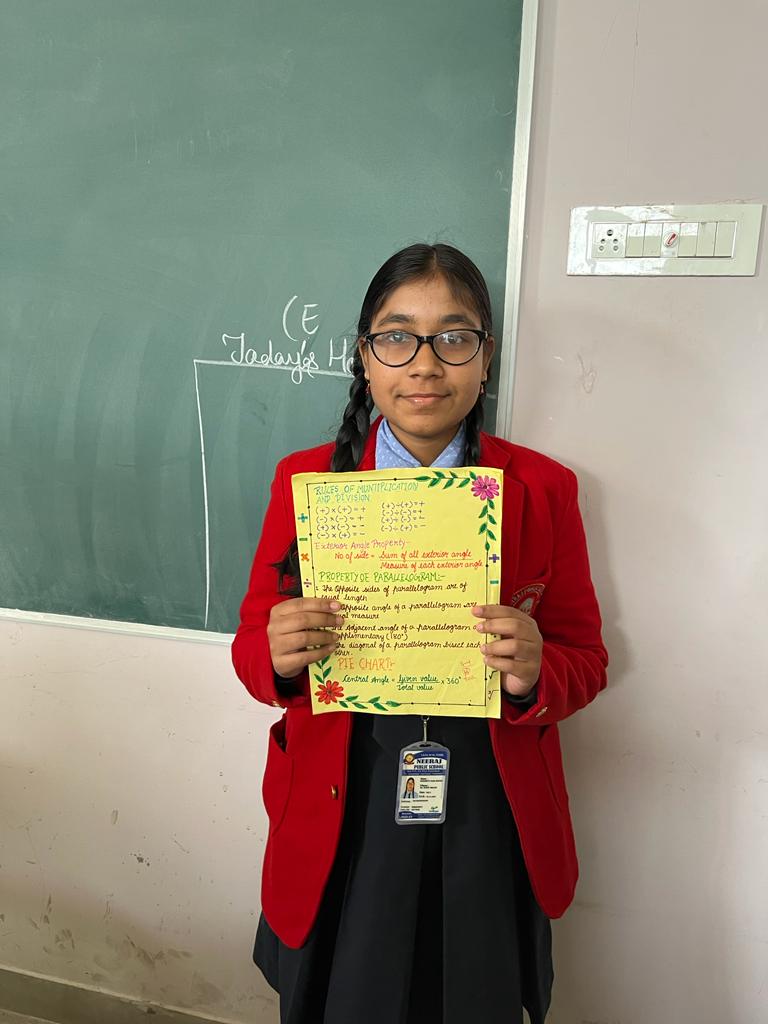 (E
Today's
RULES OF MUNTIPLICATION
AND DIVISION
(+) × (+) = + (+) ÷ (+) = +
(-) × (-) = + (-) ÷ (-) = +
(+) × (-) = - (+) ÷ (-) = -
(-) × (+) = - (-) ÷ (+) = -
Exterior Angle Property:-
No of side = Sum of all exterior angle
Measure of each exterior angle
PROPERTY OF PARALLELOGRAM:-
The opposite sides of parallelogram are of
equal length
opposite angle of a parallelogram are
The Adjacent angle of a parallelogram
supplementary (180°)
the diagonal of a parallelogram bisect each
other.
PIE CHART:-
Central Angle = Given value × 360°
Total value
NEERAJ
PUBLIC SCHOOL